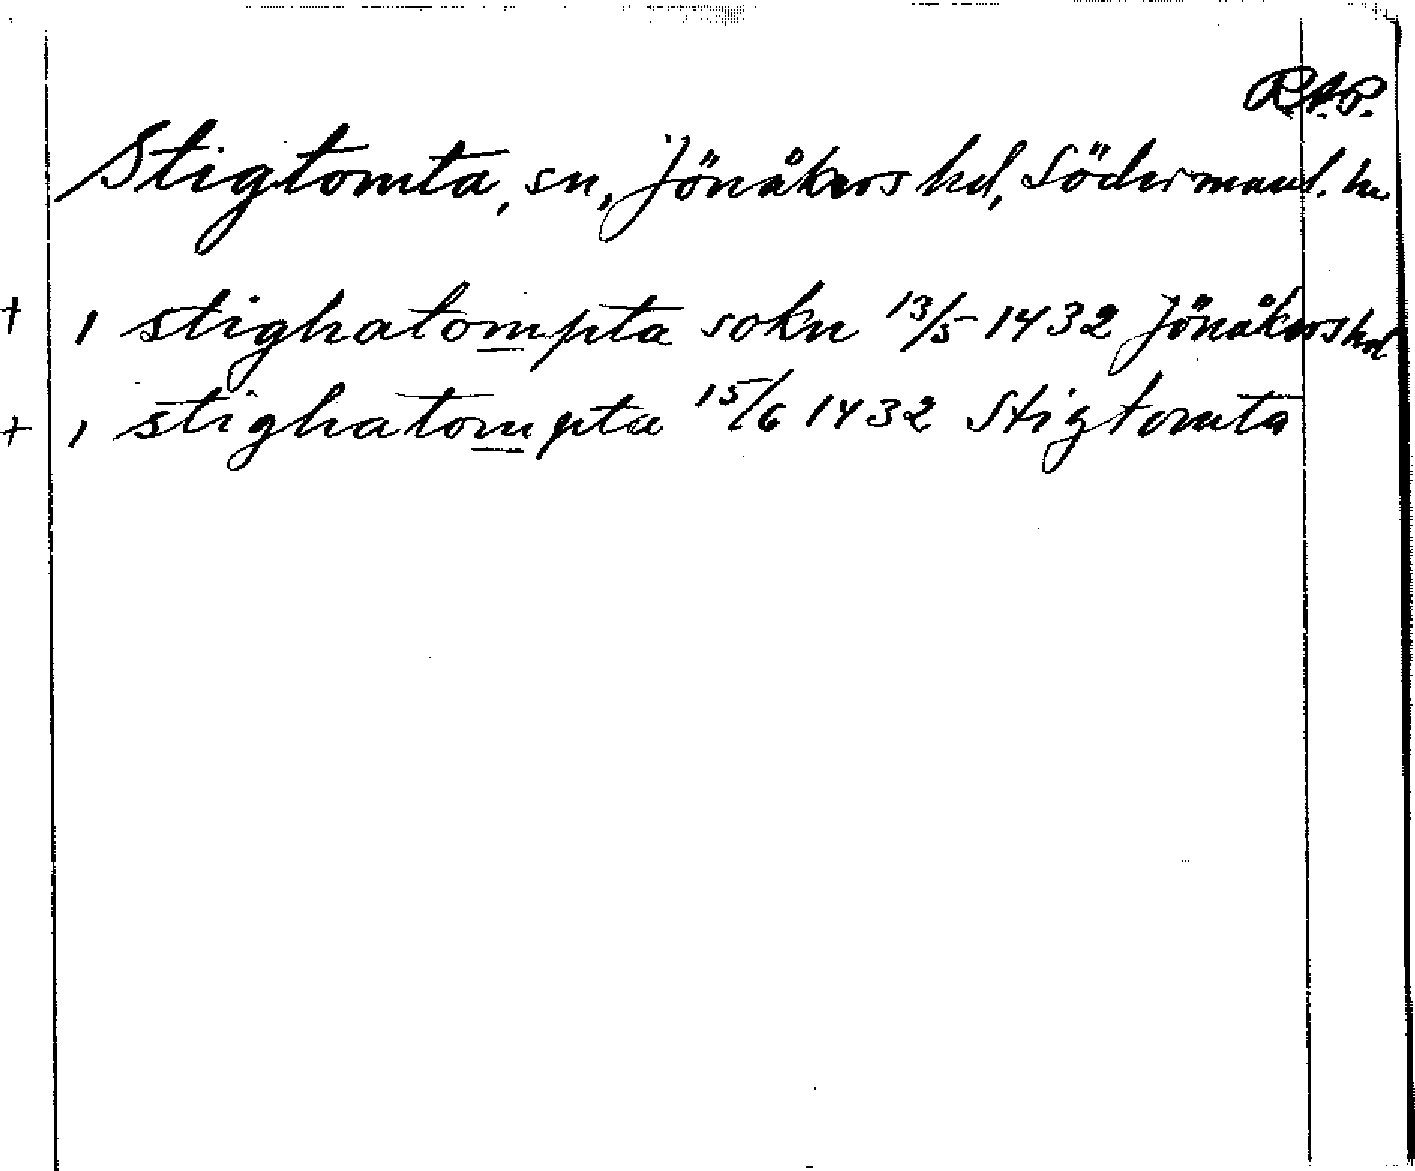 R.A.P.
Stigtomta, sn, Jönåkers hd, Södermanl. ln
+ i stighatompta sokn 13/5 1432 Jönåkers hd
+ i stighatompta 15/6 1432 Stigtomta